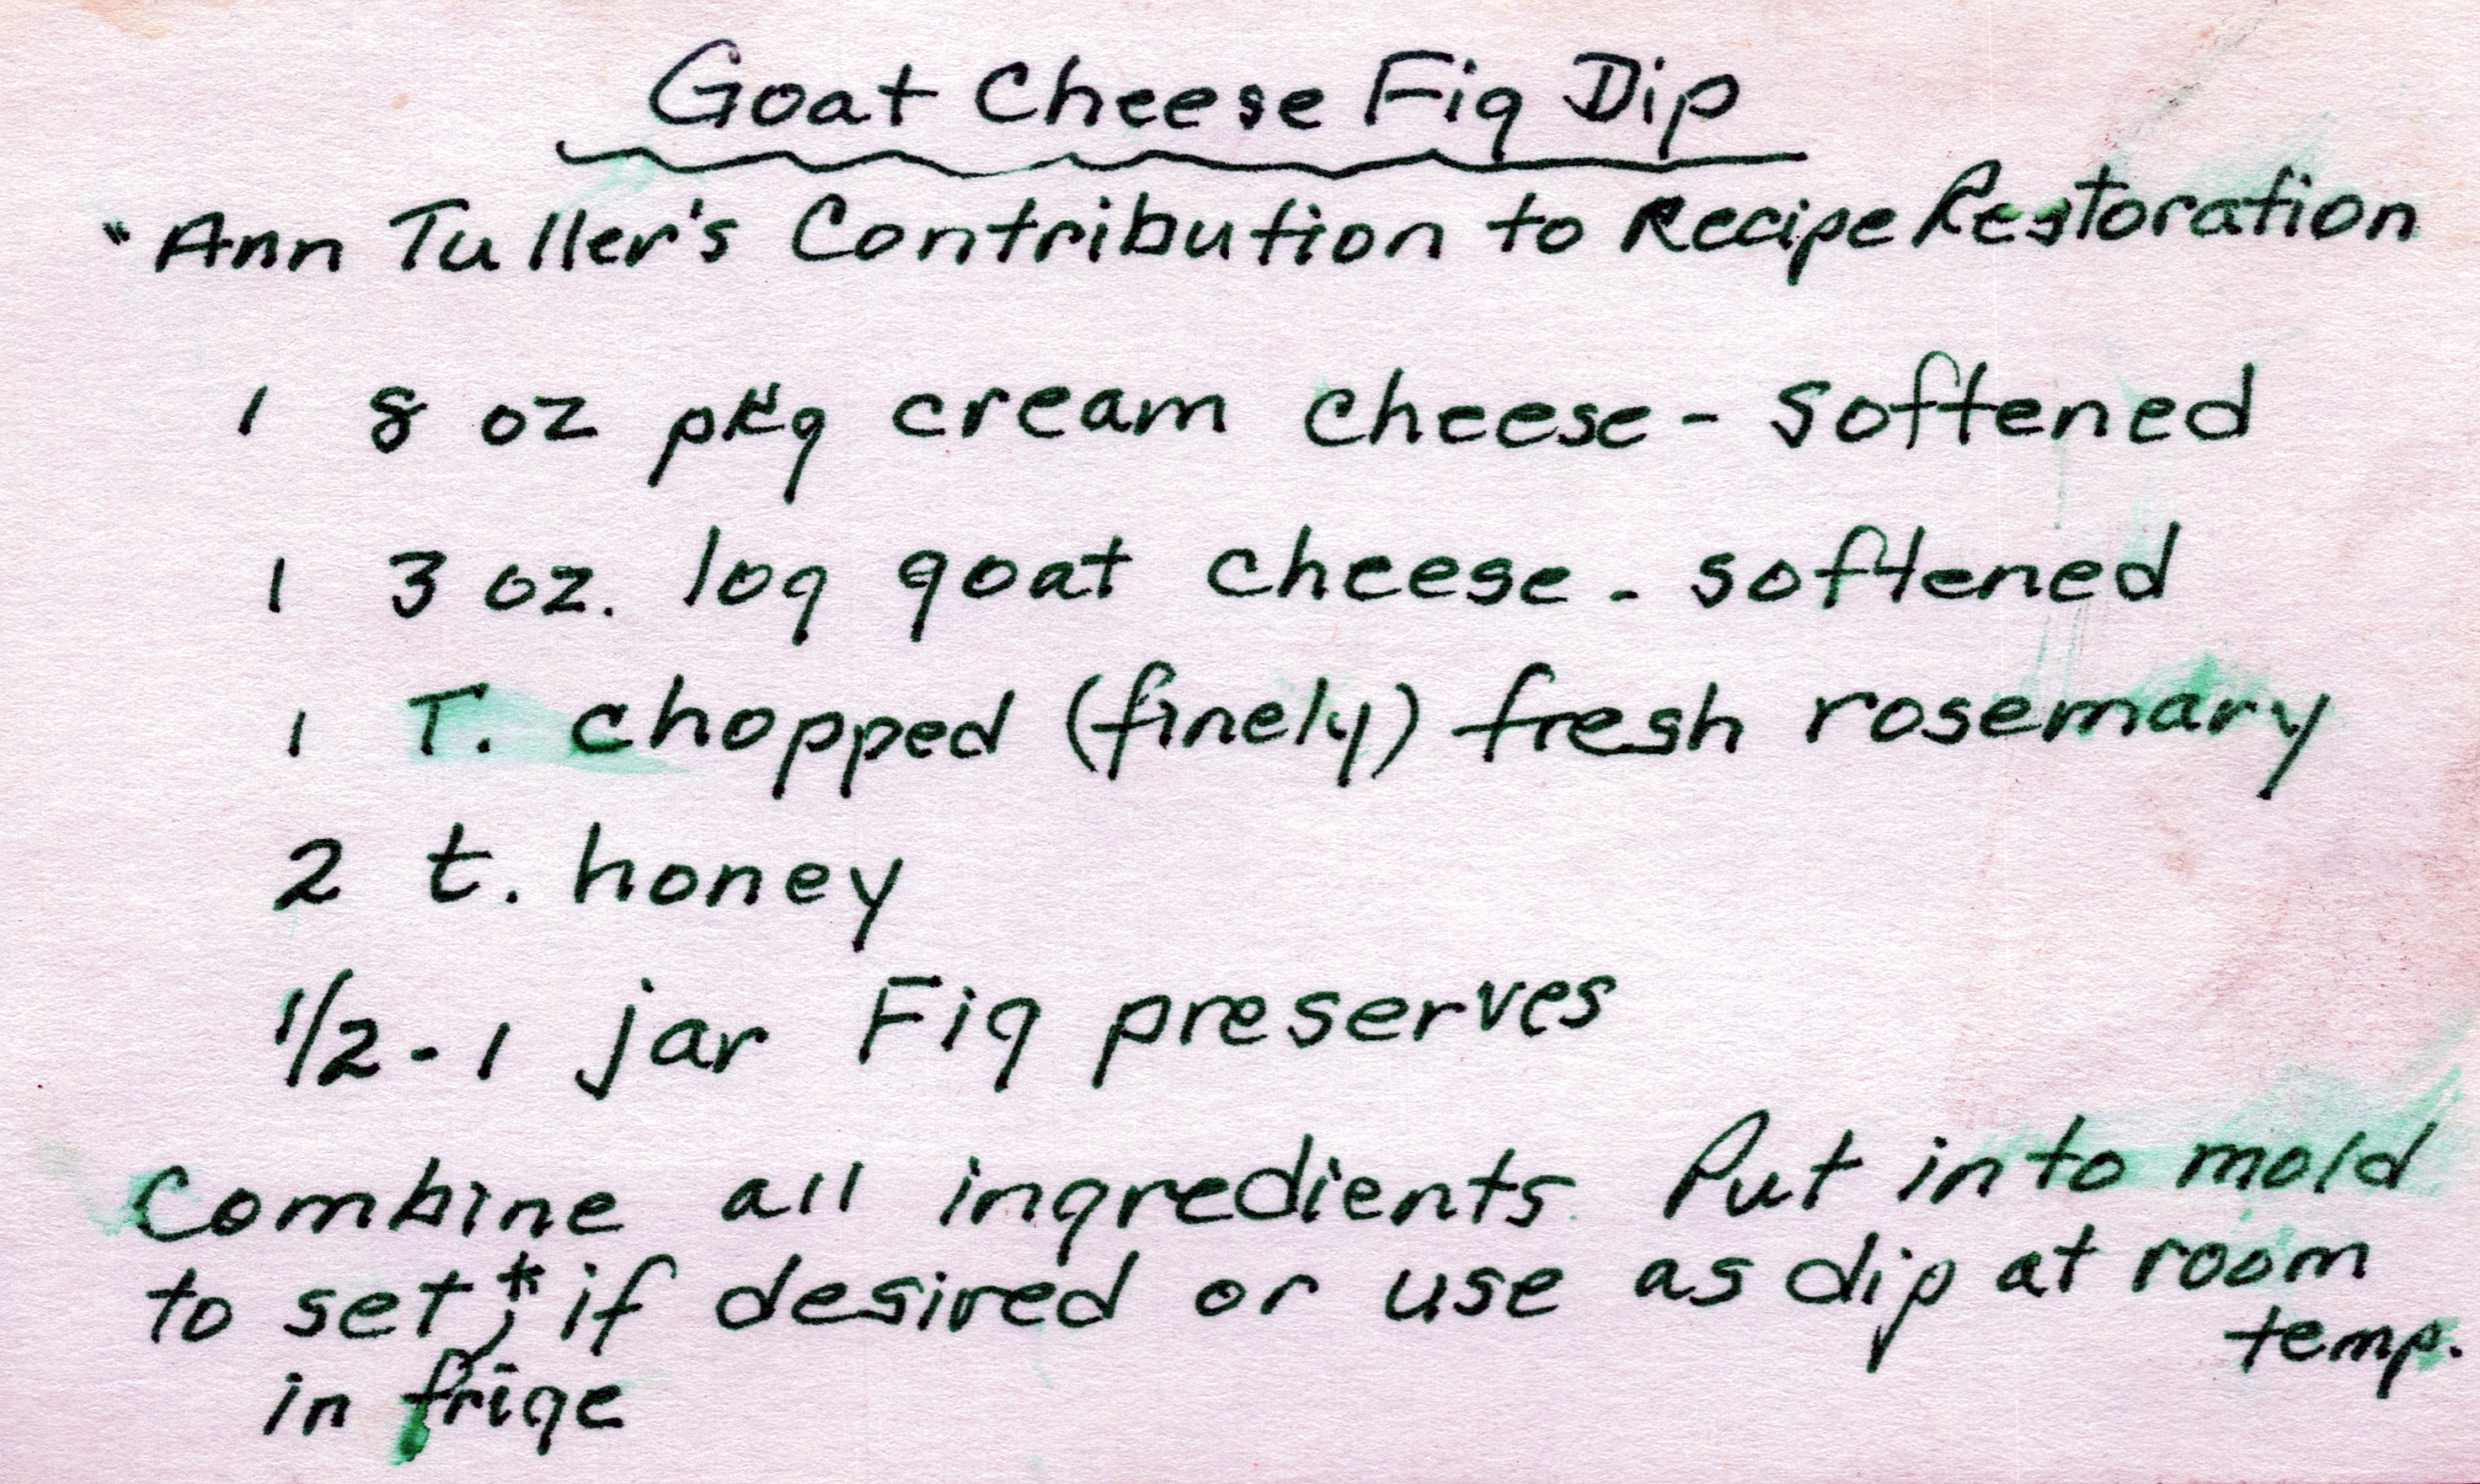 Goat Cheese Fig Dip
"Ann Tuller's Contribution to Recipe Restoration
1 8 oz pkg cream cheese - softened
1 3 oz. log goat cheese - softened
1 T. chopped (finely) fresh rosemary
2 t. honey
1/2 - 1 jar Fig preserves
Combine all ingredients. Put into mold
to set,* if desired or use as dip at room
temp.
in frige